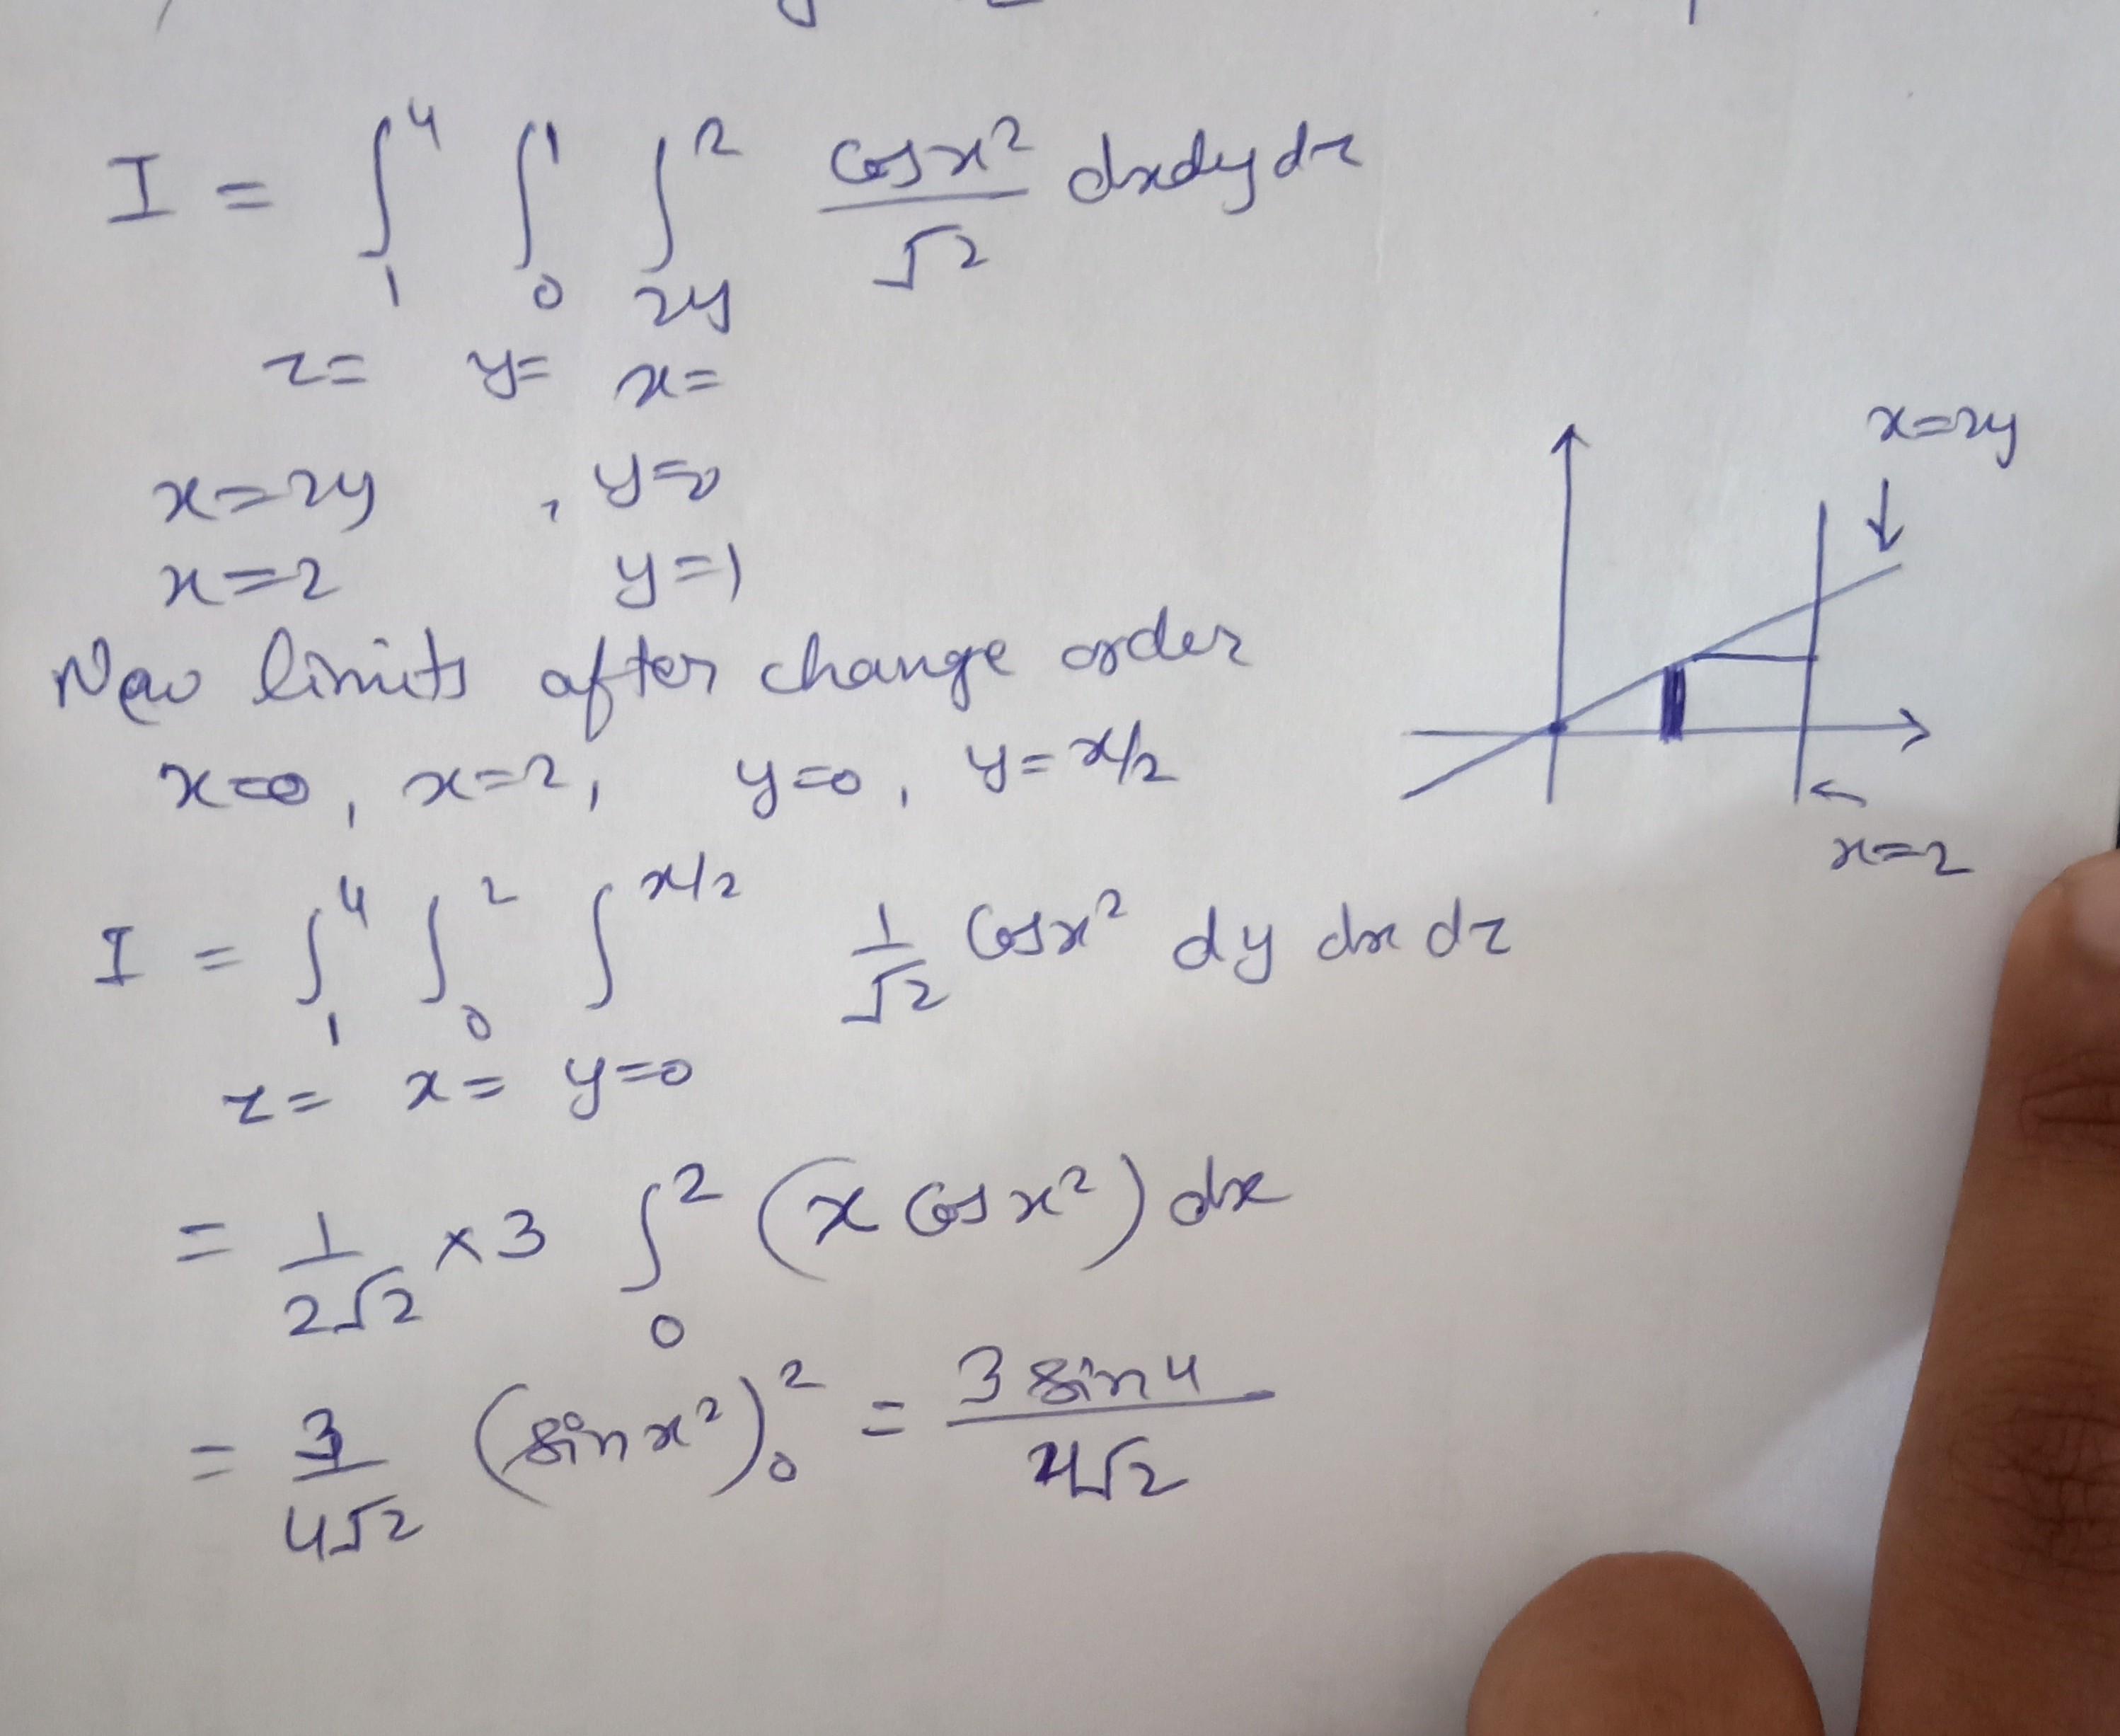 I = ∫₁⁴ ∫₀¹ ∫₂ᵧ² cosx²/√2 dxdydz
z= y= x=
x=2y , y=0
x=2 y=1
New limits after change order
x=0, x=2, y=0, y=x/2
x=2y
x=2
I = ∫₁⁴ ∫₀² ∫^(x/2) 1/√2 cosx² dy dx dz
z= x= y=0
= 1/2√2 ×3 ∫₀² (x cosx²) dx
= 3/4√2 (sinx²)₀² = 3 sin4/4√2